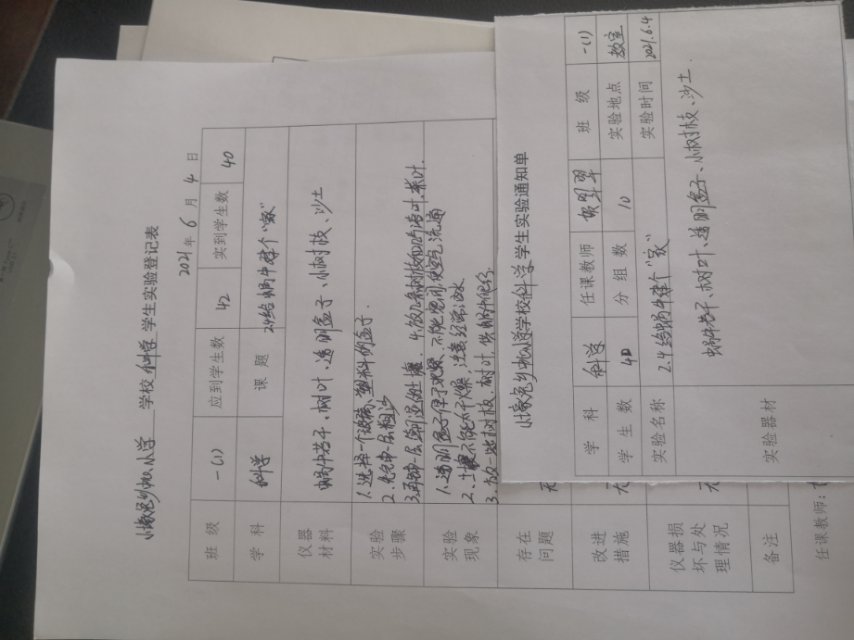 小学 学校 科学 学生实验登记表
2021年 6 月 4 日
班级 一(1) 应到学生数 42 实到学生数 40
学科 科学 课题 2.4给蜗牛建个“家”
仪器材料 蜗牛若干、树叶、透明盒子、小树枝、沙土
实验步骤 1.选择一个玻璃、塑料的盒子.
2.先铺一层粗沙
3.再铺一层潮湿的土壤 4.放几条树枝和鲜嫩叶、菜叶.
实验现象 1.透明盒子便于观察,不能密闭,使空气流通
2.土壤不能太干燥,注意经常洒水
3.放一些树枝、树叶,供蜗牛爬行.
存在问题 无
改进措施 无
仪器损坏与处理情况 无
备注
任课教师:
小学学校科学学生实验通知单
学科 科学 任课教师 班级 一(1)
学生数 40 分组数 10 实验地点 教室
实验名称 2.4给蜗牛建个“家” 实验时间 2021.6.4
实验器材 蜗牛若干、树叶、透明盒子、小树枝、沙土.